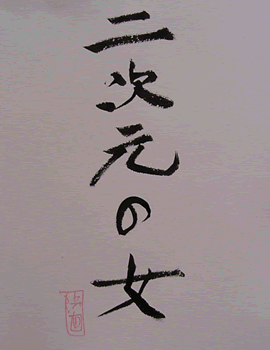 二次元の女